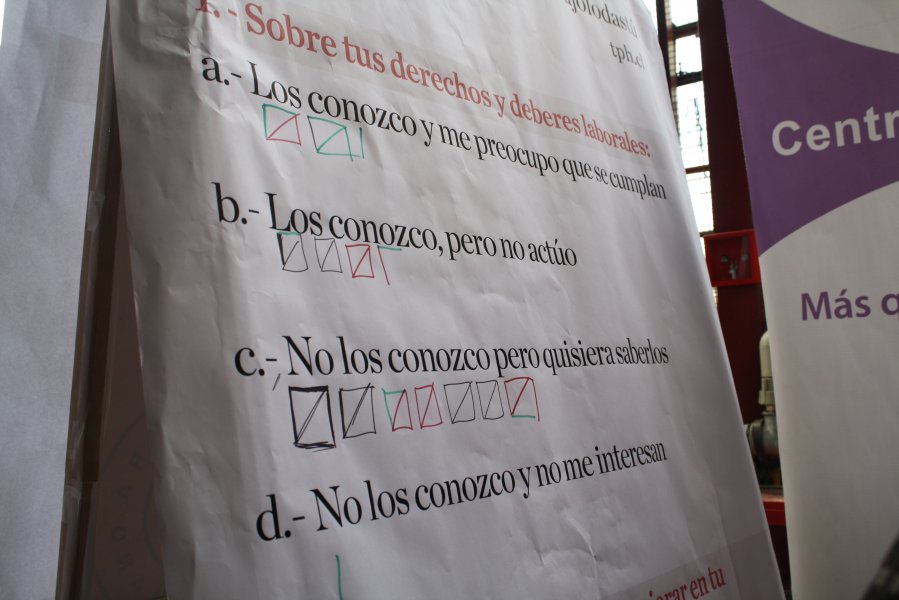 ajolodastú
tph.cl
1. - Sobre tus derechos y deberes laborales:
a.- Los conozco y me preocupo que se cumplan
b.- Los conozco, pero no actúo
c.- No los conozco pero quisiera saberlos
d.- No los conozco y no me interesan
en tu
Centr
Más q